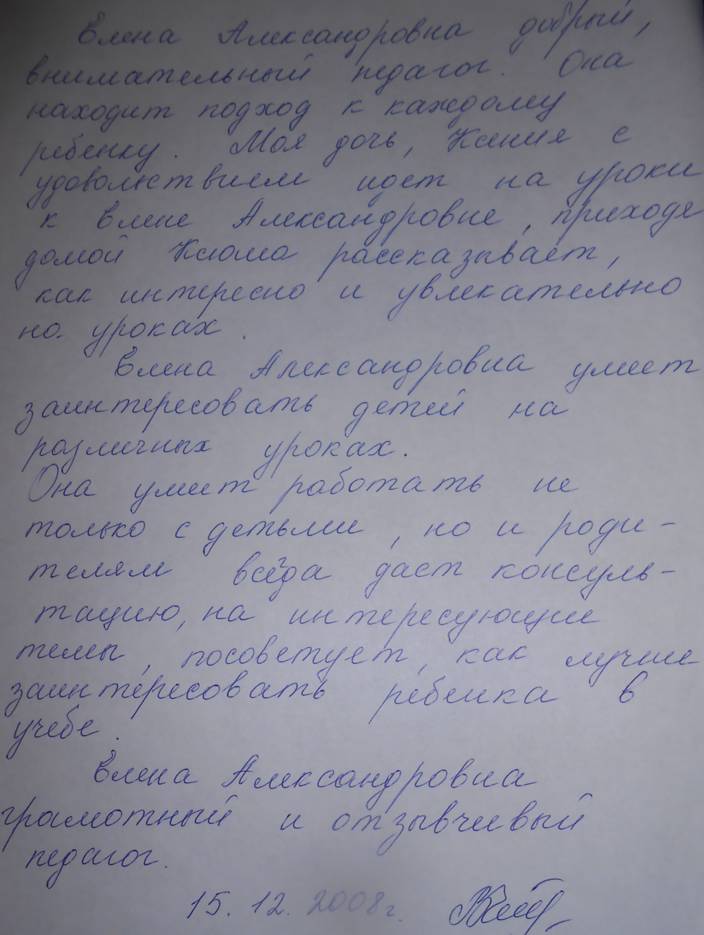 Елена Александровна добрый,
внимательный педагог. Она
находит подход к каждому
ребенку. Моя дочь, Ксения с
удовольствием идет на уроки
к Елене Александровне, приходя
домой Ксюша рассказывает,
как интересно и увлекательно
на уроках.
Елена Александровна умеет
заинтересовать детей на
различных уроках.
Она умеет работать не
только с детьми, но и роди-
телям всегда даст консуль-
тацию, на интересующие
темы, посоветует, как лучше
заинтересовать ребенка в
учебе.
Елена Александровна
грамотный и отзывчивый
педагог.
15.12.2008г.